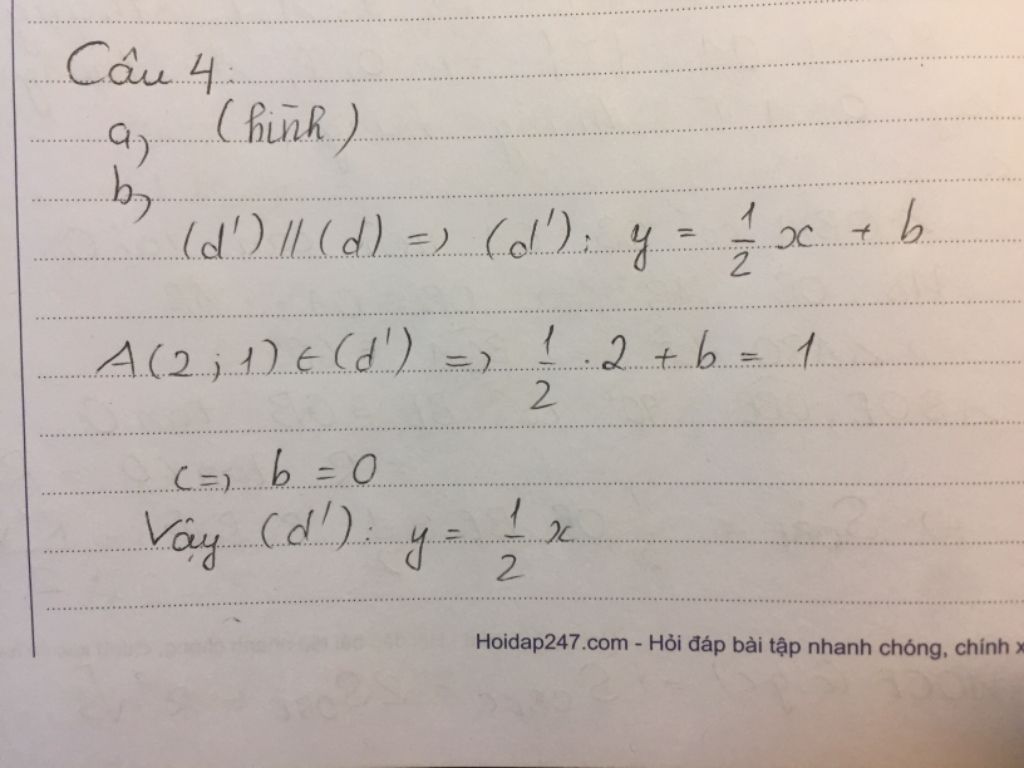 Câu 4:
a, (hình)
b,
(d') // (d) => (d'): y = 1/2 x + b
A(2;1) ∈ (d') => 1/2 . 2 + b = 1
<=> b = 0
Vậy (d'): y = 1/2 x
Hoidap247.com - Hỏi đáp bài tập nhanh chóng, chính x